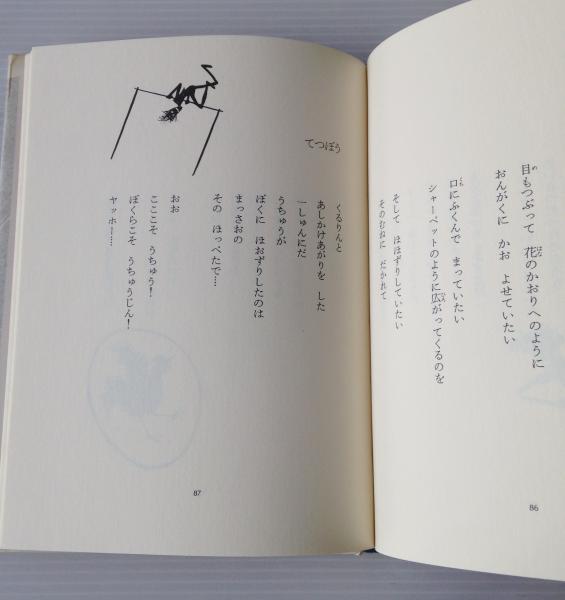 目もつぶって 花のかおりへのように
おんがくに かお よせていたい
口にふくんで まっていたい
シャーベットのように広がってくるのを
そして ほほずりしていたい
そのむねに だかれて
86
てつぼう
くるりんと
あしかけあがりを した
一しゅんにだ
うちゅうが
ぼくに ほおずりしたのは
まっさおの
その ほっぺたで…
おお
こここそ うちゅう!
ぼくらこそ うちゅうじん!
ヤッホー……
87